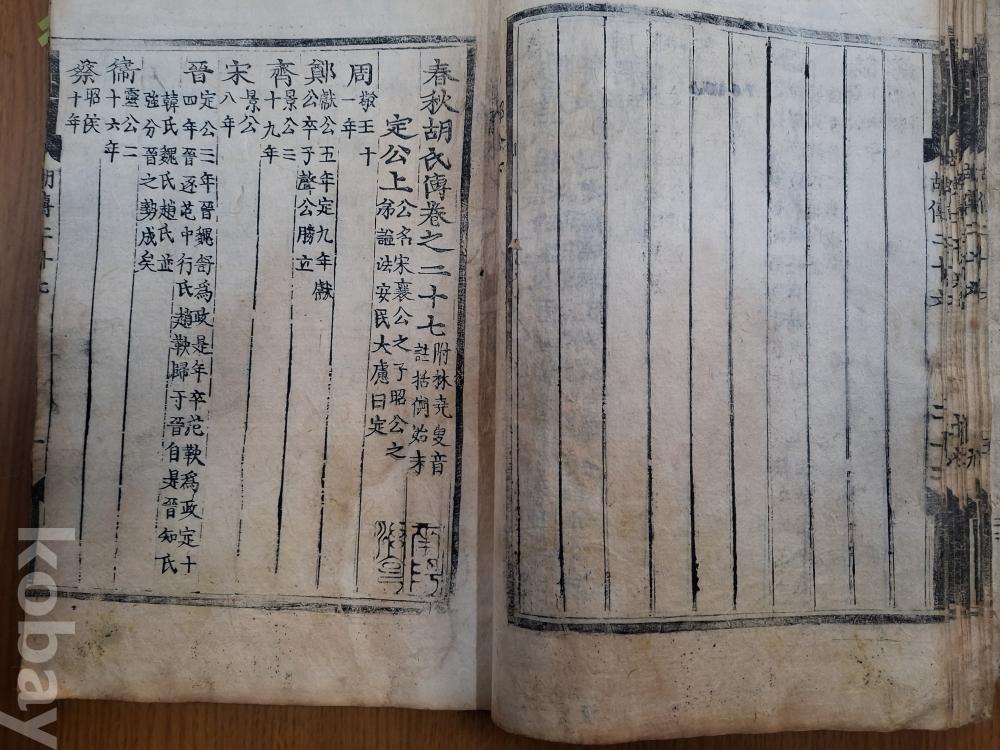 春秋胡氏傳卷之二十七 附林堯叟音註括例始末
定公上 公名宋襄公之子昭公之弟謚法安民大慮曰定
周 敬王十一年
鄭 獻公五年定九年獻公卒子聲公勝立
齊 景公三十九年
宋 景公八年
晉 定公三年晉魏舒爲政是年卒范鞅爲政定十四年晉逐范中行氏趙鞅歸于晉自是晉知氏韓氏魏氏趙氏並強分晉之勢成矣
衞 靈公二十六年
蔡 昭侯十年
胡傳二十七
胡傳二十六
kobay